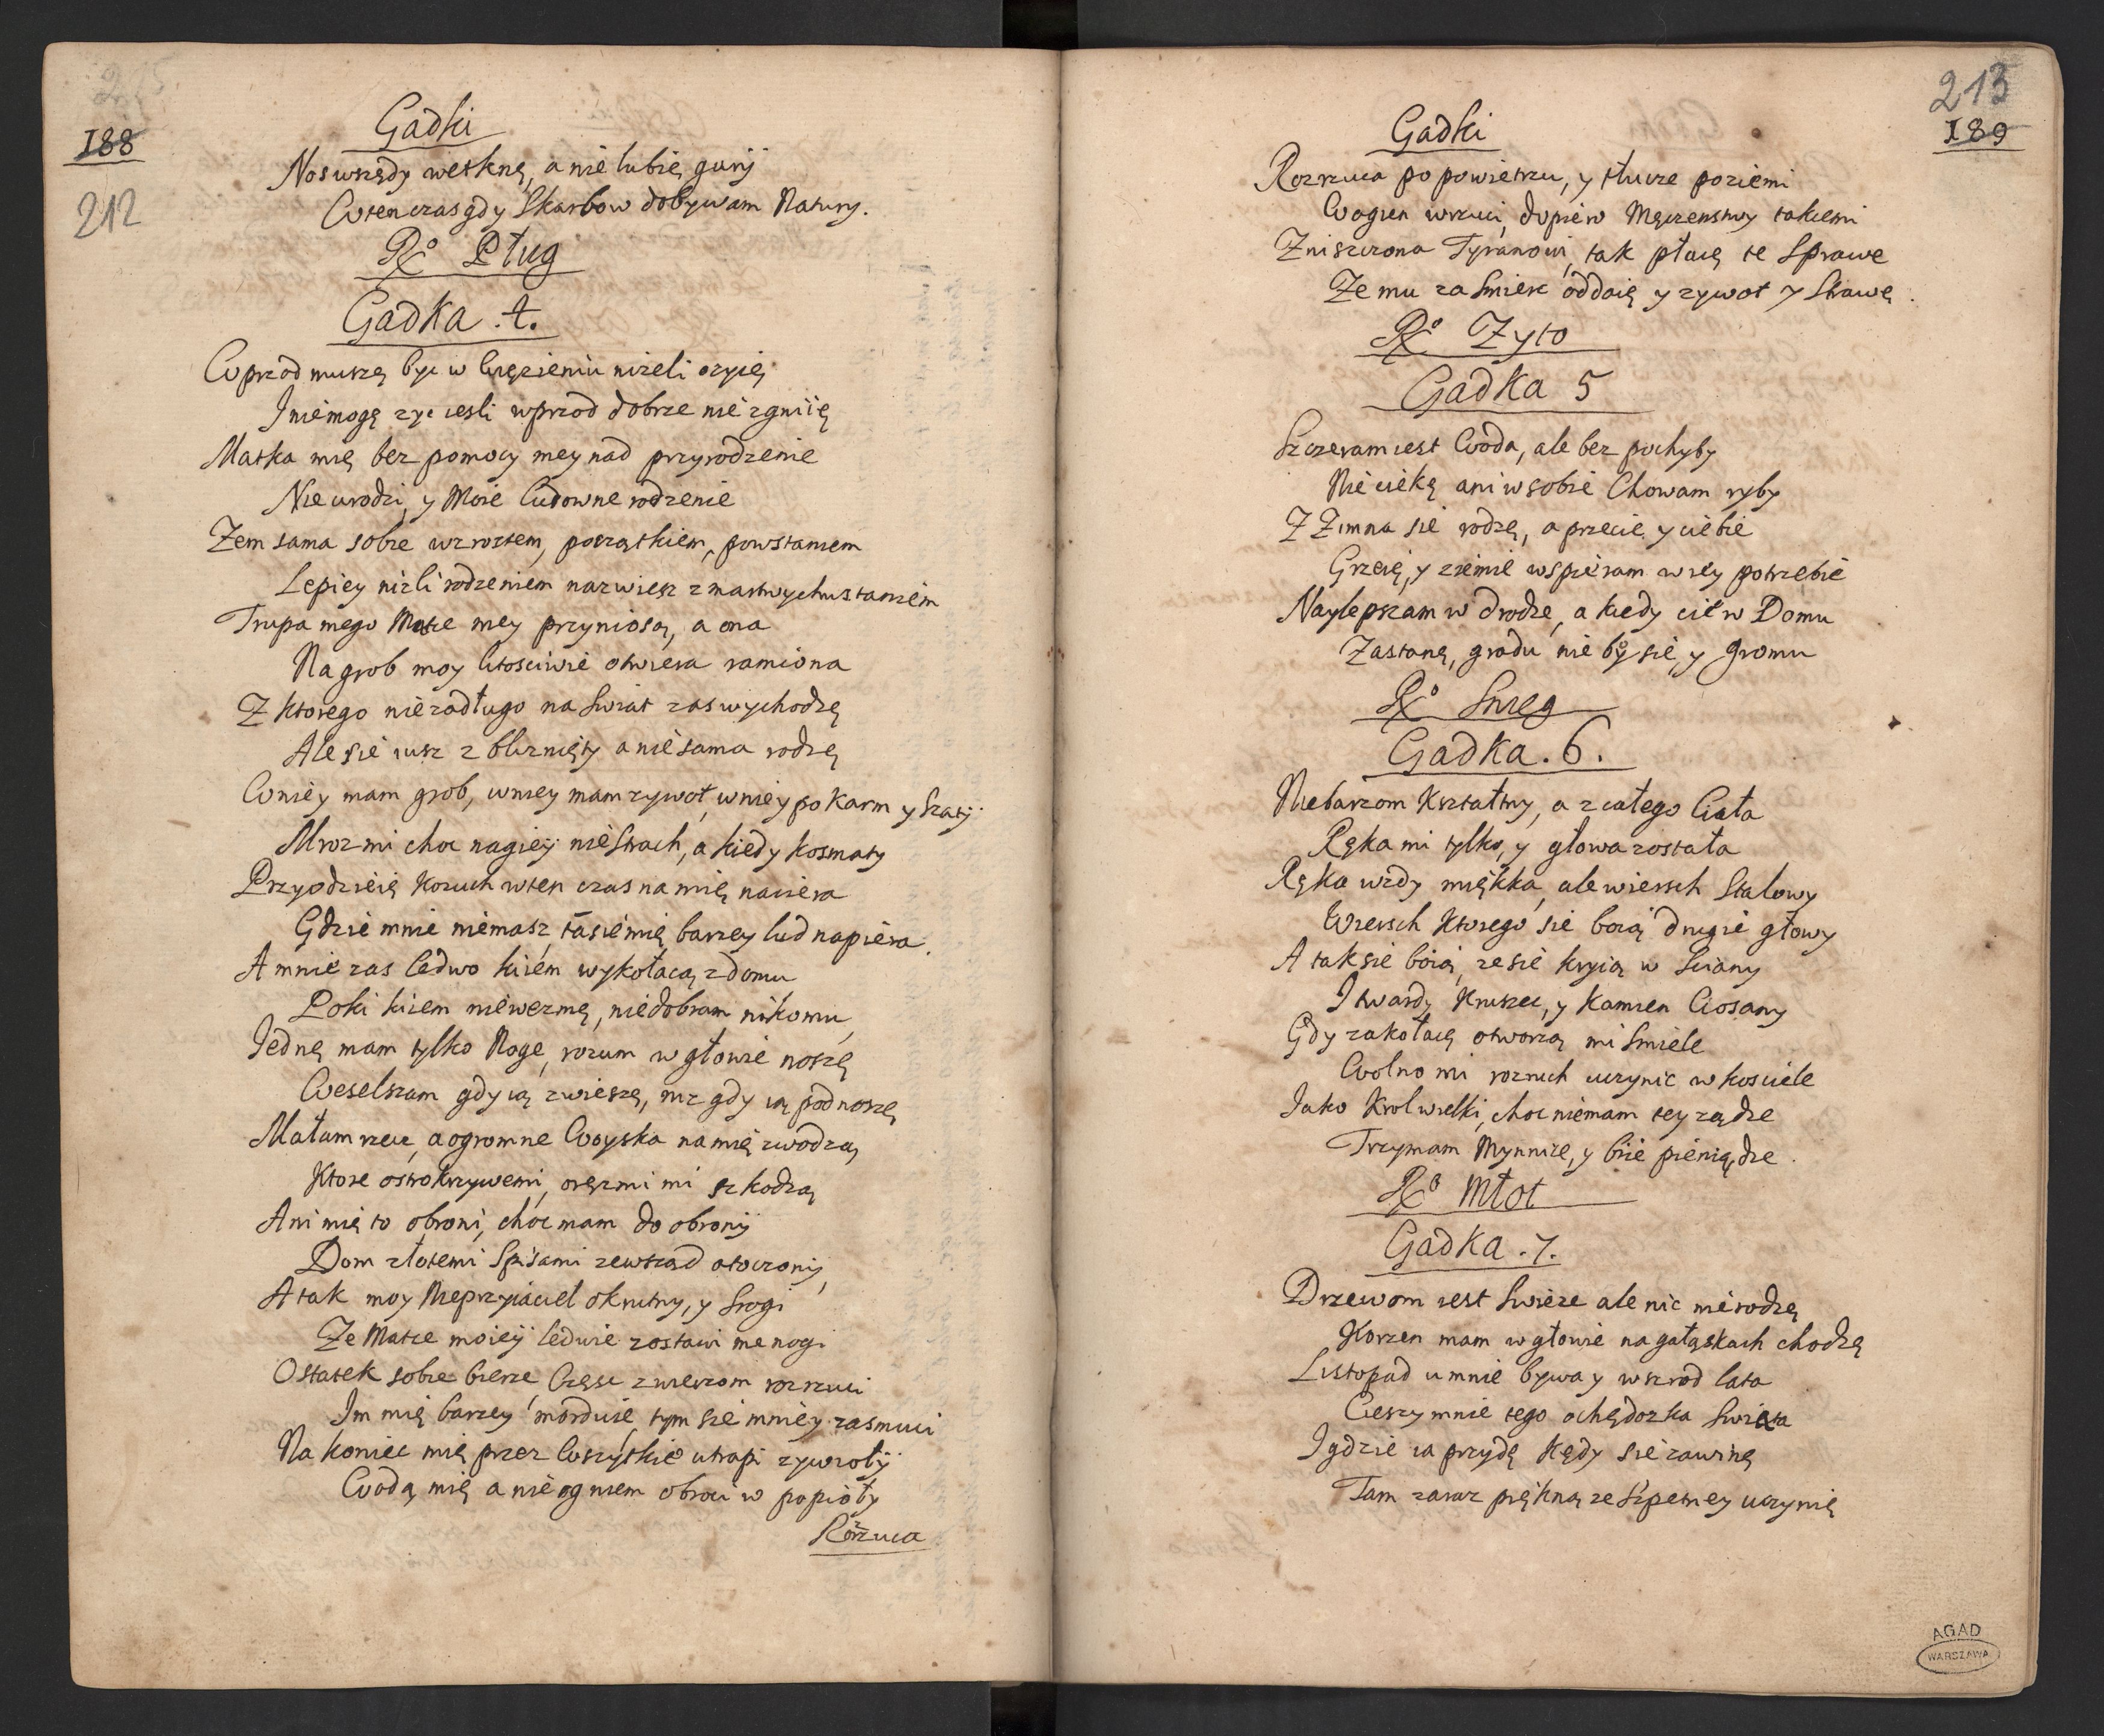 188
212
Gadki
Nos wszędy wetknę, a nie lubię gurij
Wtenczas gdy Skarbow dobywam Natury.
Rº Pług
Gadka .4.
Wprzod muszę byc w Więzieniu nizeli ozyię
I niemogę zyc iesli wprzod dobrze nie zgniię
Matka mię bez pomocy mey nad przyrodzenie
Nie urodzi, y Moie Cudowne rodzenie
Zem sama sobie wzrostem, początkiem, powstaniem
Lepiey nizli rodzeniem nazwiesz zmartwychwstaniem
Trupa mego Matce mey przyniosą, a ona
Na grob moy litosciwie otwiera ramiona
Z ktorego niezadługo na Swiat zas wychodzę
Ale sie iusz z bliznięty a nie sama rodzę
W niey mam grob, w niey mam zywot, w niey pokarm y Szatÿ
Mroz mi choc nagieÿ nie Strach, a kiedy kosmaty
Przyodzieię kozuch wten czas na mię naciera
Gdzie mnie niemasz, tasie mię barzey lud napiera.
A mnie zas ledwo kiiem wykołacą z domu
Poki kiiem niewezmę, niedobram nikomu,
Jednę mam tylko Nogę, rozum w głowie noszę
Weselszam gdy ią zwieszę, niz gdy ią podnoszę
Małam rzecz, a ogromne Woyska na mię zwodzą
Ktore ostrokrzywemi, oręzmi mi szkodzą
Ani mię to obroni, choc mam do obronÿ
Dom złotemi Spisami zewsząd otoczonÿ,
A tak moy Nieprzyiaciel okrutny, y Srogi
Ze Matce moieÿ ledwie zostawi me nogi
Ostatek sobie bierze Częsc zwierzom rozrzuci
Im mię barzey morduie, tym sie mniey zasmuci
Na koniec mię przez wszystkie utrapi zywiołÿ
Wodą mię a nie ogniem obroci w popiołÿ
Rozrzuca
213
189
Gadki
Rozrzuca po powietrzu, y tłucze poziemi
W ogien wrzuci, dopiero Męczenstwy takiemi
Zniszczona Tyranowi, tak płacę te Sprawe
Ze mu za Smierc oddaię y zywot y Strawę.
Rº Zyto
Gadka 5
Szczeram iest Woda, ale bez pochyby
Nie ciekę ani w sobie Chowam ryby
Z Zimna sie rodzę, a przecie y ciebie
Grzeię, y ziemie wspieram w iey potrzebie
Naylepszam w drodze, a kiedy cie w Domu
Zastanę, gradu nie boy sie, y gromu
Rº Snieg
Gadka .6.
Niebarzom Kształtny, a z całego Ciała
Ręka mi tylko, y głowa została
Ręka wzdy miękka, ale wierzch Stalowy
Wierzch Ktorego sie boią drugie głowy
A tak sie boią, ze sie kryią w Sciany
I twardy Kruszec, y Kamien Ciosany
Gdy zakołacę otworzą mi Smiele
Wolno mi rozruch uczynic w kosciele
Jako Krol wielki, choc niemam tey ządze
Trzymam Mynnice, y biie pieniądze.
Rº Młot
Gadka .7.
Drzewom iest Swieze ale nic nierodzę
Korzen mam w głowie na gałąskach chodzę
Listopad u mnie bywa y wszrod lata
Cieszy mnie tego ochędozka Swiata
I gdzie ia przydę kędy sie zawinę
Tam zaraz piękną ze Szpetney uczynię
AGAD
WARSZAWA